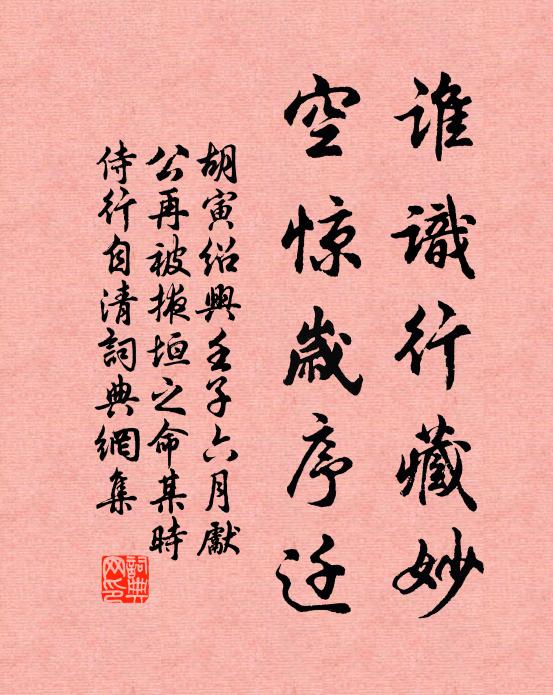 谁識行藏妙
空惊歲序迁
胡寅绍興壬子六月獻
公再被掖垣之命某時
侍行自清詞典網集
詞典网印